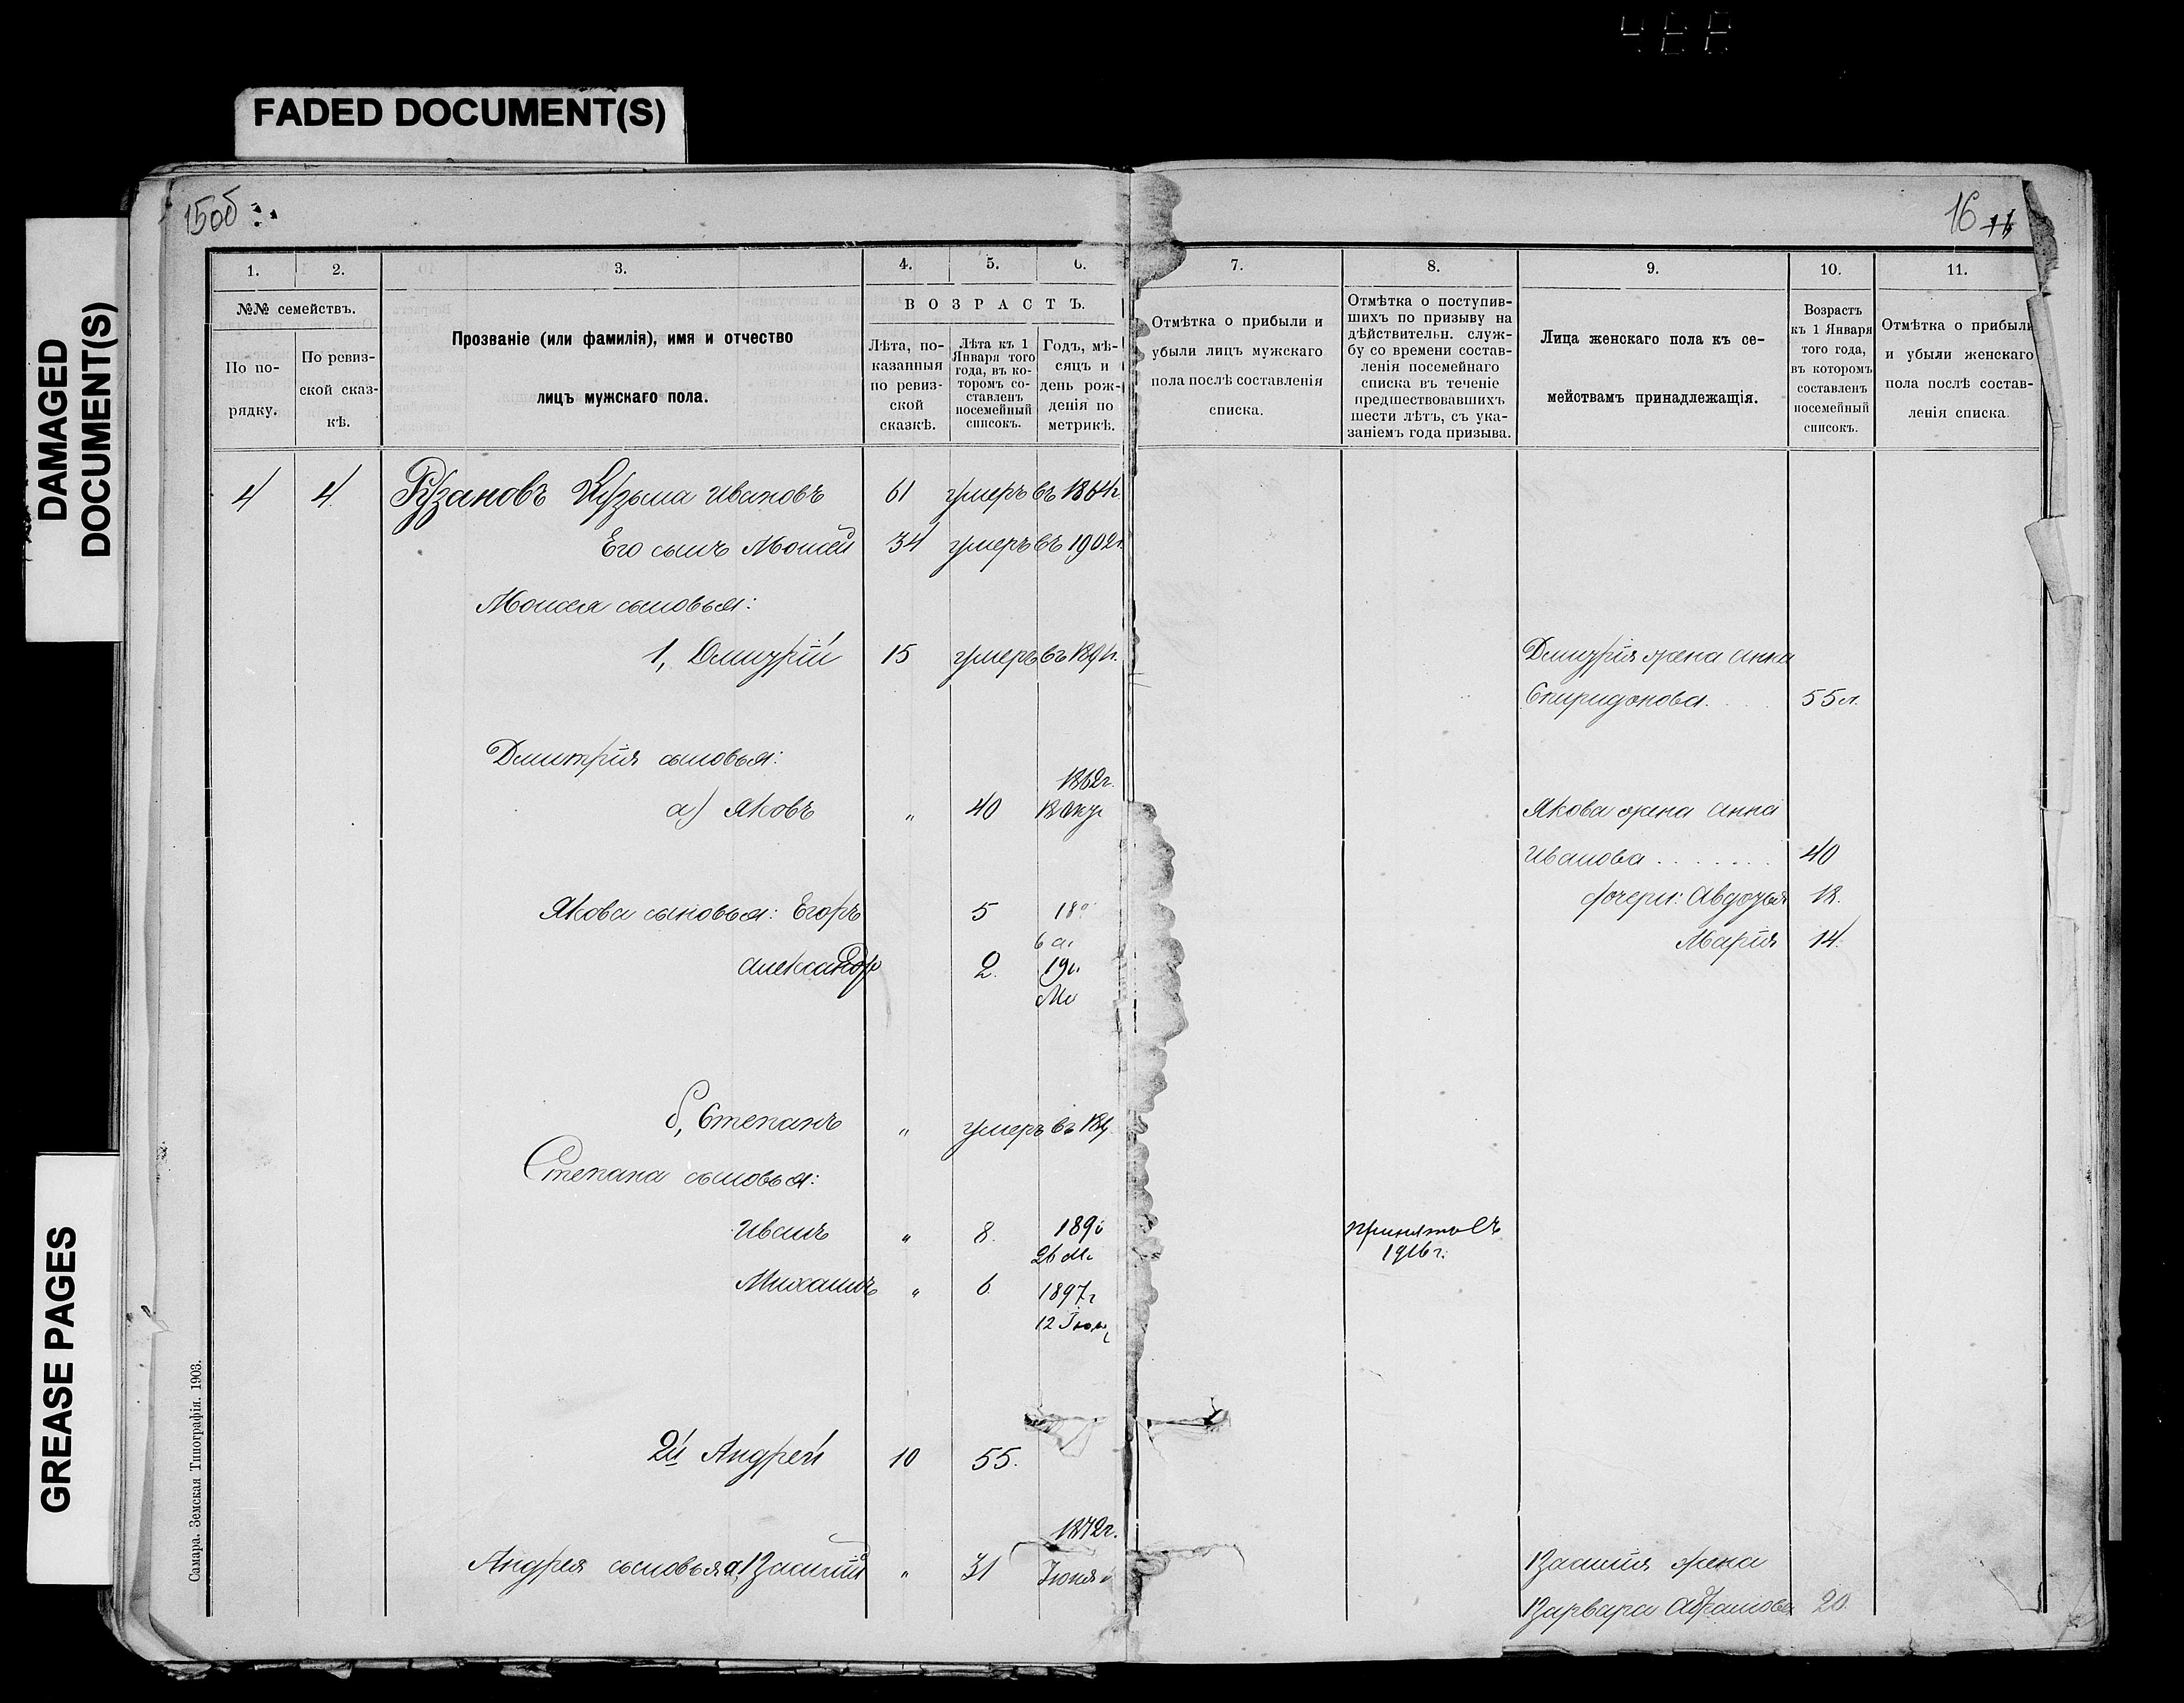 FADED DOCUMENT(S)
DAMAGED DOCUMENT(S)
GREASE PAGES
15об
16
1. 2. 3. 4. 5. 6. 7. 8. 9. 10. 11.
№№ семействъ.
По по-
рядку.
По ревиз-
ской сказ-
кѣ.
Прозваніе (или фамилія), имя и отчество
лицъ мужскаго пола.
ВОЗРАСТЪ.
Лѣта, по-
казанныя
по ревиз-
ской
сказкѣ.
Лѣта къ 1
Января того
года, въ ко-
торомъ со-
ставленъ
посемейный
списокъ.
Годъ, мѣ-
сяцъ и
день рож-
денія по
метрикѣ.
Отмѣтка о прибыли и
убыли лицъ мужскаго
пола послѣ составленія
списка.
Отмѣтка о поступив-
шихъ по призыву на
дѣйствительн. служ-
бу со времени состав-
ленія посемейнаго
списка въ теченіе
предшествовавшихъ
шести лѣтъ, съ ука-
заніемъ года призыва.
Лица женскаго пола къ се-
мействамъ принадлежащія.
Возрастъ
къ 1 Января
того года,
въ которомъ
составленъ
посемейный
списокъ.
Отмѣтка о прибыли
и убыли женскаго
пола послѣ состав-
ленія списка.
4 4 Рузановъ Кузьма Ивановъ 61 умеръ въ 1864г.
Его сынъ Моисей 34 умеръ въ 1902г.
Моисея сыновья:
1, Дмитрій 15 умеръ въ Дмитрія жена Анна
Спиридонова. 55 л.
Дмитрія сыновья:
1862г.
а) Яковъ " 40 Якова жена Анна
Иванова 40
Якова сыновья: Егоръ 5 18 дочери: Авдотья 18.
Марія 14.
Александр 2. 19
б, Степанъ " умеръ въ
Степана сыновья:
Иванъ " 8. 189 принятъ въ
26 1916 г.
Михаилъ " 6. 1897г
12 Іюн
2й Андрей 10 55.
1872г.
Андрея сыновья а, Василій " 31 Іюня Василія жена
Варвара Абрамова 20.
Самара. Земская Типографія. 1903.